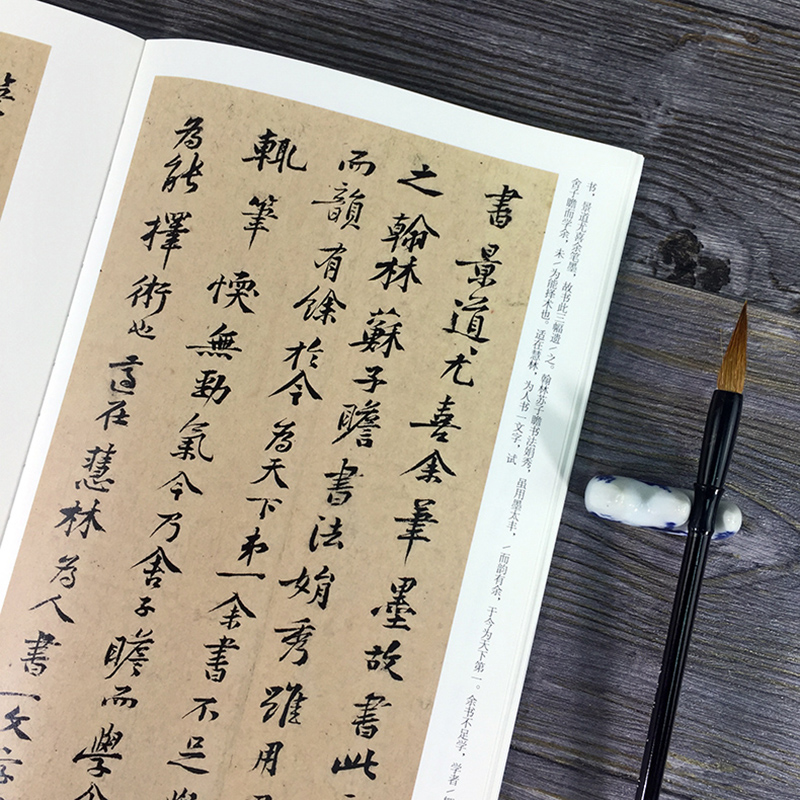 書景道尤喜余筆墨故書此
之翰林蘇子瞻書法娟秀雖用
而韻有餘於今為天下弟一余書不足學
輒筆愞無勁氣今乃舍子瞻而學余
為能擇術也適在慧林為人書一文字
书，景道尤喜余笔墨，故书此三幅遗/之。翰林苏子瞻书法娟秀，虽用墨太丰，/而韵有余，于今为天下第一。余书不足学，学者/
舍子瞻而学余，未/为能择术也。适在慧林，为人书一文字，试